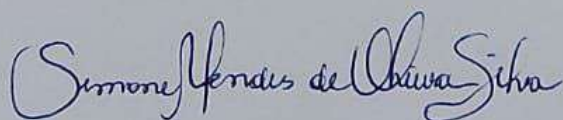 Simone Mendes de Oliveira Silva